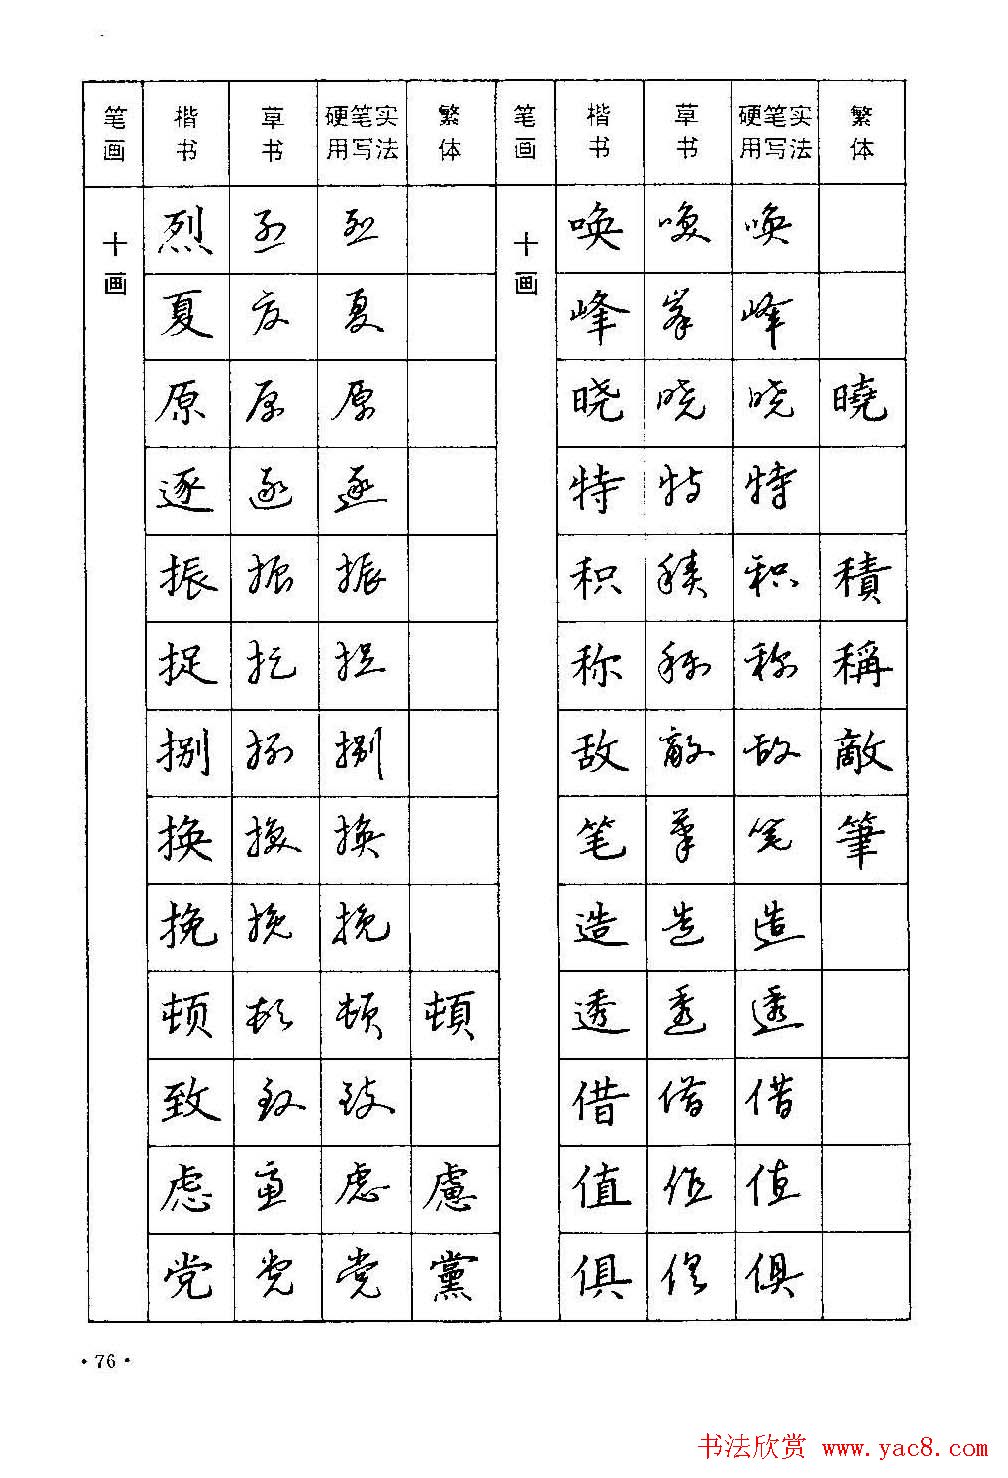 笔画 楷书 草书 硬笔实用写法 繁体 笔画 楷书 草书 硬笔实用写法 繁体
十画 烈 烈 烈 十画 唤 唤 唤
夏 夏 夏 峰 峰 峰
原 原 原 晓 晓 晓 曉
逐 逐 逐 特 特 特
振 振 振 积 積 积 積
捉 捉 捉 称 称 称 稱
捌 捌 捌 敌 敵 敌 敵
换 换 换 笔 筆 笔 筆
挽 挽 挽 造 造 造
顿 顿 顿 頓 透 透 透
致 致 致 借 借 借
虑 慮 虑 慮 值 值 值
党 党 党 黨 俱 俱 俱
·76·
书法欣赏 www.yac8.com